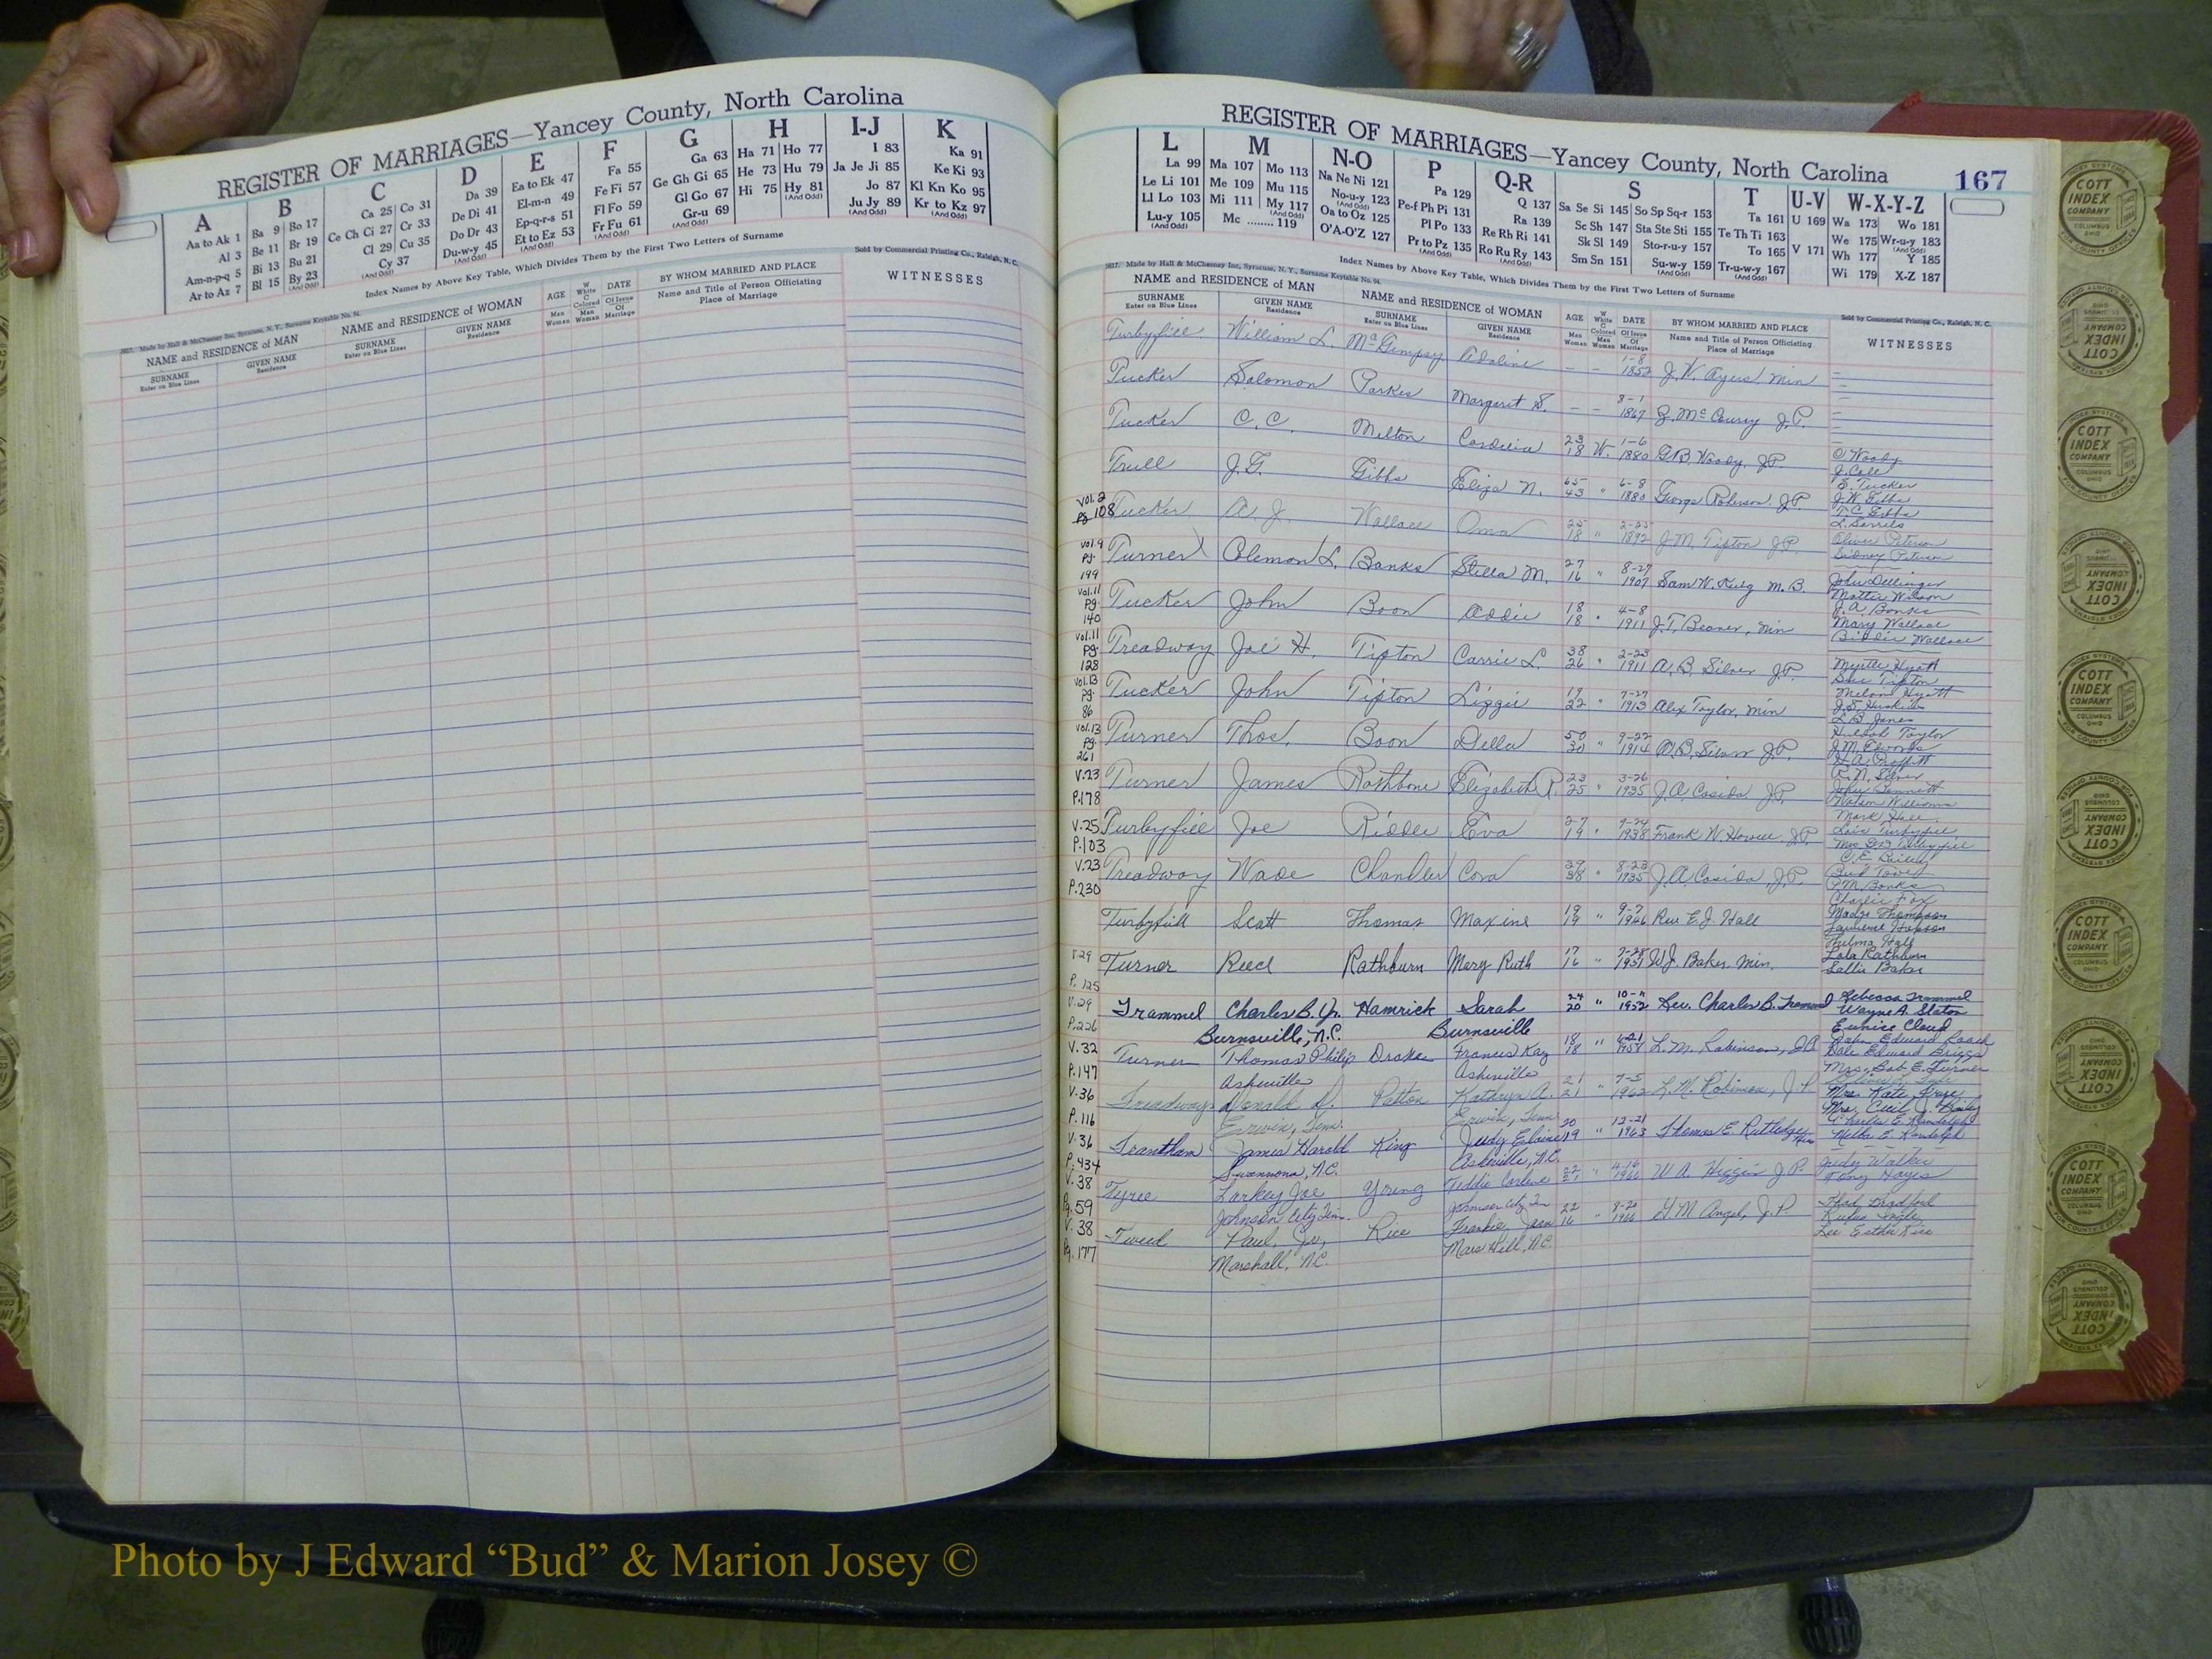 REGISTER OF MARRIAGES—Yancey County, North Carolina
A B C D E F G H I-J K
Aa to Ak 1 Ba 9 Bo 17 Ca 25 Co 31 Da 39 Ea to Ek 47 Fa 55 Ga 63 Ha 71 Ho 77 I 83 Ka 91
Al 3 Be 11 Br 19 Ce Ch Ci 27 Cr 33 De Di 41 El-m-n 49 Fe Fi 57 Ge Gh Gi 65 He 73 Hu 79 Ja Je Ji 85 Ke Ki 93
Am-n-p-q 5 Bi 13 Bu 21 Cl 29 Cu 35 Do Dr 43 Ep-q-r-s 51 Fl Fo 59 Gl Go 67 Hi 75 Hy 81 (And Odd) Jo 87 Kl Kn Ko 95
Ar to Az 7 Bl 15 By 23 (And Odd) Cy 37 (And Odd) Du-w-y 45 (And Odd) Et to Ez 53 (And Odd) Fr Fu 61 (And Odd) Gr-u 69 (And Odd) Ju Jy 89 (And Odd) Kr to Kz 97 (And Odd)
Index Names by Above Key Table, Which Divides Them by the First Two Letters of Surname
Made by Hall & McChesney Inc, Syracuse, N. Y., Surname Keytable No. 94.
Sold by Commercial Printing Co., Raleigh, N. C.
NAME and RESIDENCE of MAN
SURNAME Enter on Blue Lines
GIVEN NAME Residence
NAME and RESIDENCE of WOMAN
SURNAME Enter on Blue Lines
GIVEN NAME Residence
AGE Man Woman
W White C Colored Man Woman
DATE Of Issue Of Marriage
BY WHOM MARRIED AND PLACE
Name and Title of Person Officiating
Place of Marriage
WITNESSES
REGISTER OF MARRIAGES—Yancey County, North Carolina 167
L M N-O P Q-R S T U-V W-X-Y-Z
La 99 Ma 107 Mo 113 Na Ne Ni 121 Pa 129 Q 137 Sa Se Si 145 So Sp Sq-r 153 Ta 161 U 169 Wa 173 Wo 181
Le Li 101 Me 109 Mu 115 No-u-y 123 (And Odd) Pe-f Ph Pi 131 Ra 139 Sc Sh 147 Sta Ste Sti 155 Te Th Ti 163 We 175 Wr-u-y 183 (And Odd)
Ll Lo 103 Mi 111 My 117 (And Odd) Oa to Oz 125 Pl Po 133 Re Rh Ri 141 Sk Sl 149 Sto-r-u-y 157 To 165 V 171 Wh 177 Y 185
Lu-y 105 (And Odd) Mc ........ 119 O'A-O'Z 127 Pr to Pz 135 (And Odd) Ro Ru Ry 143 (And Odd) Sm Sn 151 Su-w-y 159 (And Odd) Tr-u-w-y 167 (And Odd) Wi 179 X-Z 187
Index Names by Above Key Table, Which Divides Them by the First Two Letters of Surname
Made by Hall & McChesney Inc, Syracuse, N. Y., Surname Keytable No. 94.
Sold by Commercial Printing Co., Raleigh, N. C.
NAME and RESIDENCE of MAN
SURNAME Enter on Blue Lines
GIVEN NAME Residence
NAME and RESIDENCE of WOMAN
SURNAME Enter on Blue Lines
GIVEN NAME Residence
AGE Man Woman
W White C Colored Man Woman
DATE Of Issue Of Marriage
BY WHOM MARRIED AND PLACE
Name and Title of Person Officiating
Place of Marriage
WITNESSES
Turbyfill William L. McGimpsy Adaline – – 1-8 1852 J.W. Ayers, Min
Tucker Solomon Parker Margaret S. – – 8-1 1867 McCourry J.P.
Tucker C. C. Melton Cordelia 23 18 W. 1-6 1880 G.B. Woody, J.P. Woody
Trull J.G. Gibbs Eliza N. 65 43 " 6-8 1880 George Roberson, J.P. Tucker J.W. Gibbs T.C. Gibbs
Vol. 2 pg 108 Tucker A. J. Wallace Oma 25 18 " 2-25 1892 J.M. Tipton J.P. Oliver Peterson Sidney Peterson
Vol. 9 pg. 199 Turner Colemon L. Banks Stella M. 27 16 " 8-27 1907 Sam W. King M.B. John Dellinger Mattie Wilson J.A. Banks
Vol. 11 pg. 140 Tucker John Boon Addie 18 18 " 4-8 1911 J.T. Beaver, Min Mary Wallace Biddie Wallace
Vol. 11 pg. 128 Treadway Joe H. Tipton Carrie L. 38 26 " 2-23 1911 A.B. Silver J.P. Myrtle Hyatt Tipton Hyatt
Vol. 13 pg. 86 Tucker John Tipton Lizzie 19 22 " 7-27 1913 Alex Taylor, Min L.B. Jones Taylor
Vol. 13 pg. 261 Turner Thos. Boon Della 50 30 " 9-27 1914 Silver J.P. J.M. Edwards R.N. Silver
V. 23 P. 178 Turner James Rathbone Elizabeth R. 23 25 " 3-26 1935 J.A. Casida J.P. Watson Williams Mark Hall
V. 25 P. 103 Turbyfill Joe Riddle Eva 27 19 " 9-24 1938 Frank W. Howell, J.P. Turbyfill Mrs. Turbyfill
V. 23 P. 230 Treadway Wade Chandler Cora 38 " 8-23 1935 J.A. Casida, J.P. P.M. Banks Charlie Fox
Turbyfill Scott Thomas Maxine 19 19 " 9-7 1946 Rev. E.J. Hall Madge Thompson Lawrence Hopson Thelma Hall
V. 29 P. 125 Turner Reed Rathburn Mary Ruth 17 16 " 7-28 1951 W.J. Baker, Min. Lola Rathburn Sallie Baker
V. 29 P. 226 Trammel Charles B. Jr. Hamrick Sarah 24 20 " 10-11 1952 Rev. Charles B. Trammel Rebecca Trammel
Burnsville, N.C. Burnsville Wayne A. Slaton Eunice Cloud
V. 32 P. 147 Turner Thomas Philip Drake Frances Kay 18 18 " L.M. Robinson, J.P. John Edward Roach Dale Edward Briggs
Asheville Asheville Mrs. Bob E. Turner
V. 36 P. 116 Treadway Donald D. Patton Kathryn A. 21 21 " 7-5 1962 L.M. Robinson, J.P.
Erwin, Tenn. Erwin, Tenn. Mrs. Kate Mrs. Cecil J.
V. 36 P. 434 Trantham James Harold King Judy Elaine 20 19 " 12-21 1963 Thomas E. Rutledge, Min Charles E. Randolph Melba E. Randolph
Swannanoa, N.C. Asheville, N.C.
V. 38 Pg. 59 Tyree Larkey Joe Young Teddie Carlene 22 21 " 1966 W.A. Higgins J.P. Judy Walker Tony Hayes
Johnson City Tenn. Johnson City Tn
V. 38 Pg. 177 Tweed Paul, Jr. Rice Frankie Jean 22 16 " 8-20 1966 G M Angel, J.P. Lee Esther Rice
Marshall, N.C. Mars Hill, N.C.
COTT INDEX COMPANY COLUMBUS OHIO
Photo by J Edward “Bud” & Marion Josey ©